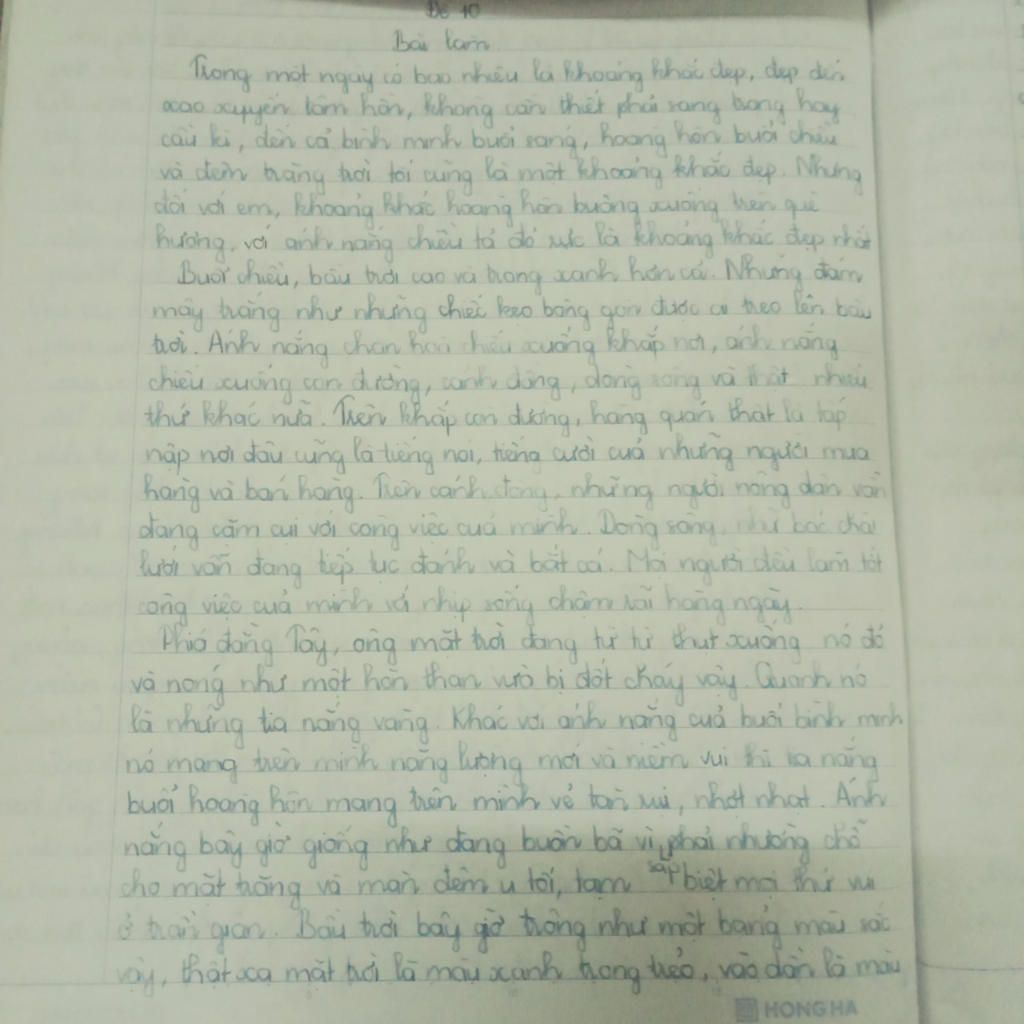 Đề 10
Bài làm
Trong một ngày có bao nhiêu là khoảng khắc đẹp, đẹp đến
xao xuyến tâm hồn, không cần thiết phải sang trọng hay
cầu kì, đến cả bình minh buổi sáng, hoàng hôn buổi chiều
và đêm trăng trời tối cũng là một khoảng khắc đẹp. Nhưng
đối với em, khoảng khắc hoàng hôn buông xuống trên quê
hương, với ánh nắng chiều tà đỏ rực là khoảng khắc đẹp nhất
Buổi chiều, bầu trời cao và trong xanh hơn cả. Những đám
mây trắng như những chiếc kẹo bông gòn được treo lên bầu
trời. Ánh nắng chan hoà chiếu xuống khắp nơi, ánh nắng
chiếu xuống con đường, cánh đồng, dòng sông và thật nhiều
thứ khác nữa. Trên khắp con đường, hàng quán thật là tấp
nập nơi đâu cũng là tiếng nói, tiếng cười của những người mua
hàng và bán hàng. Trên cánh đồng, những người nông dân vẫn
đang cặm cụi với công việc của mình. Dòng sông, như bác chài
lưới vẫn đang tiếp tục đánh và bắt cá. Mọi người đều làm tốt
công việc của mình với nhịp sống chậm rãi hằng ngày.
Phía đằng Tây, ông mặt trời đang từ từ thụt xuống nó đỏ
và nóng như một hòn than vừa bị đốt cháy vậy. Quanh nó
là những tia nắng vàng. Khác với ánh nắng của buổi bình minh
nó mang trên mình năng lượng mới và niềm vui thì tia nắng
buổi hoàng hôn mang trên mình vẻ tàn lụi, nhợt nhạt. Ánh
nắng bây giờ giống như đang buồn bã vì phải nhường chỗ
cho mặt trăng và màn đêm u tối, tạm sắp biệt mọi thứ vui
ở trần gian. Bầu trời bây giờ trông như một bảng màu sắc
vậy, thật xa mặt trời là màu xanh trong trẻo, vào dần là màu
HONG HA